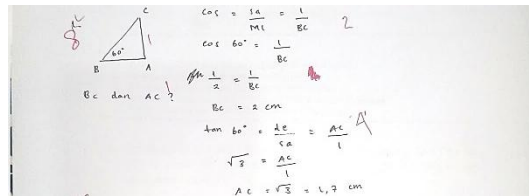 8
C
60°
B A
BC dan AC ?
cos = sa/mi = 1/BC 2
cos 60° = 1/BC
1/2 = 1/BC
BC = 2 cm
tan 60° = de/sa = AC/1
√3 = AC/1
AC = √3 = 1,7 cm